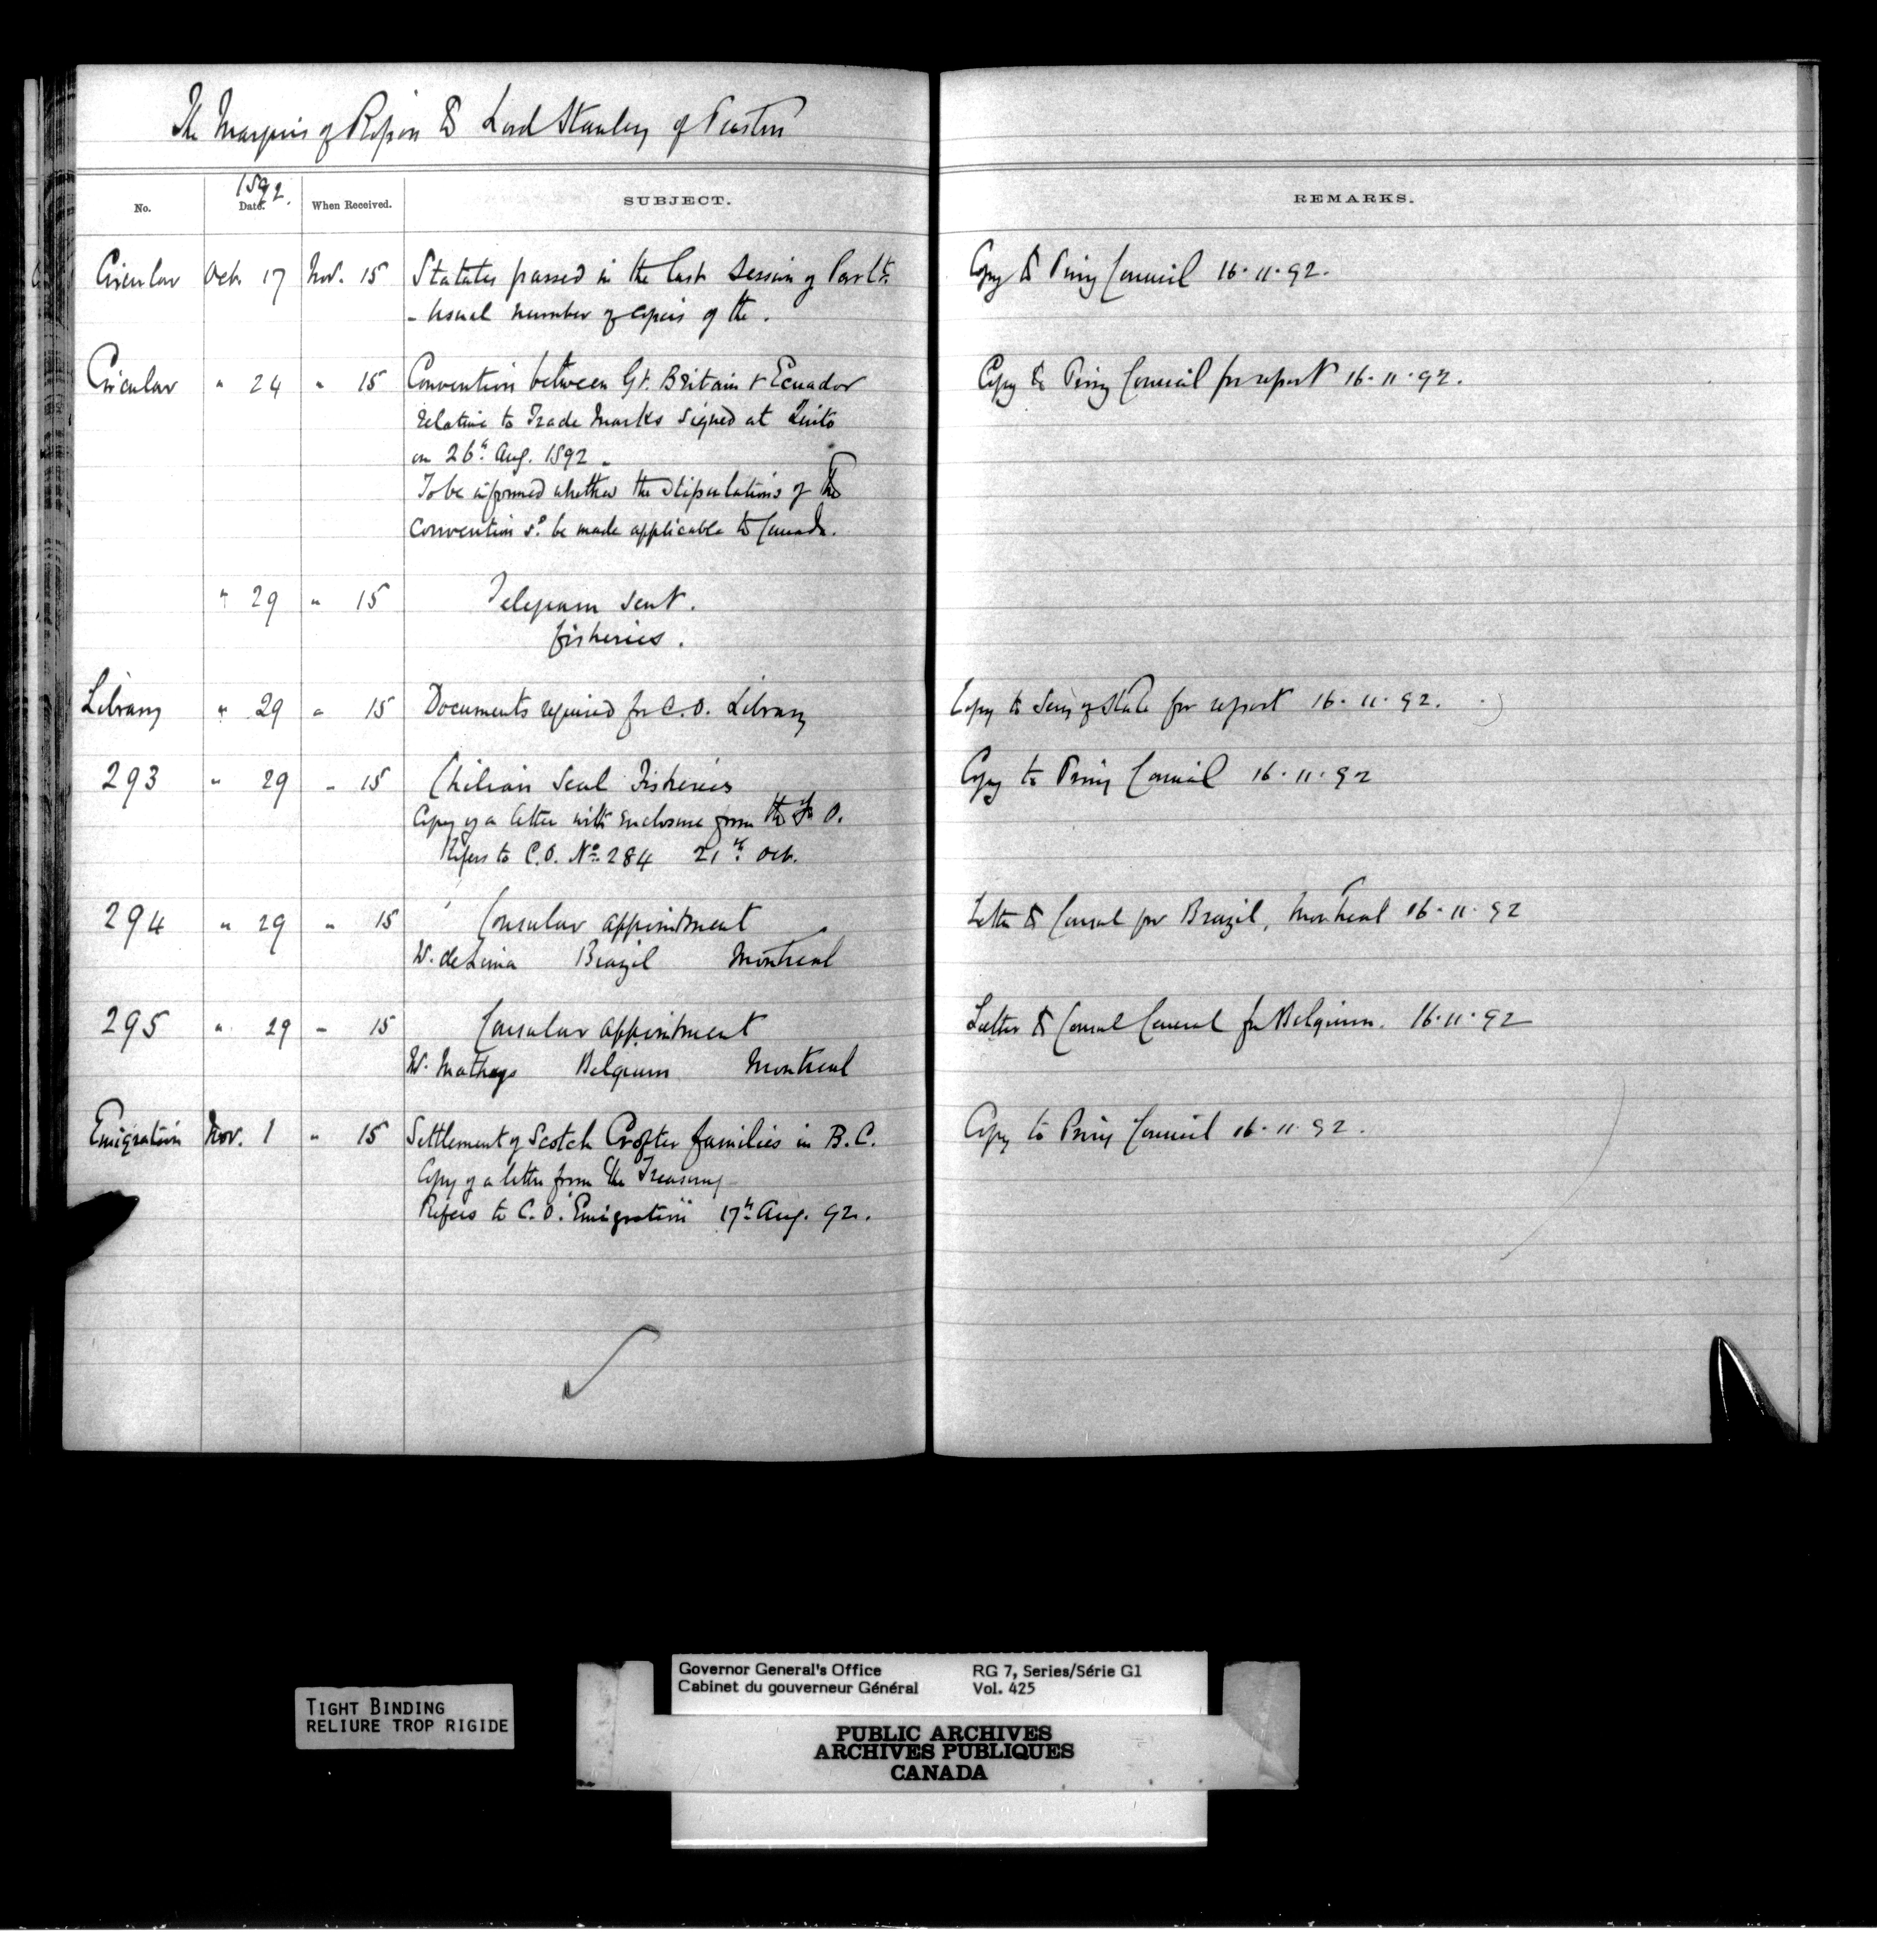 The Marquis of Ripon to Lord Stanley of Preston
No. 1892. Date. When Received. SUBJECT. REMARKS.
Circular Oct. 17 Nov. 15 Statutes passed in the last Session of Parlt. Copy to Privy Council 16.11.92.
- Usual number of copies of the.
Circular " 24 " 15 Convention between Gt. Britain & Ecuador Copy to Privy Council for report 16.11.92.
relative to Trade Marks signed at Quito
on 26th Aug. 1892.
To be informed whether the stipulations of the
Convention sd. be made applicable to Canada.
" 29 " 15 Telegram sent.
fisheries.
Library " 29 " 15 Documents required for C.O. Library Copy to Secy of State for report 16.11.92.
293 " 29 " 15 Chilian Seal Fisheries Copy to Privy Council 16.11.92
Copy of a letter with enclosure from the F.O.
Refers to C.O. No. 284 21st Oct.
294 " 29 " 15 Consular appointment Letter to Consul for Brazil, Montreal 16.11.92
W. de Lima Brazil Montreal
295 " 29 " 15 Consular appointment Letter to Consul General for Belgium. 16.11.92
W. Mathays Belgium Montreal
Emigration Nov. 1 " 15 Settlement of Scotch Crofter families in B.C. Copy to Privy Council 16.11.92.
Copy of a letter from the Treasury
Refers to C.O. "Emigration" 17th Aug. 92.
TIGHT BINDING
RELIURE TROP RIGIDE
Governor General's Office RG 7, Series/Série G1
Cabinet du gouverneur Général Vol. 425
PUBLIC ARCHIVES
ARCHIVES PUBLIQUES
CANADA